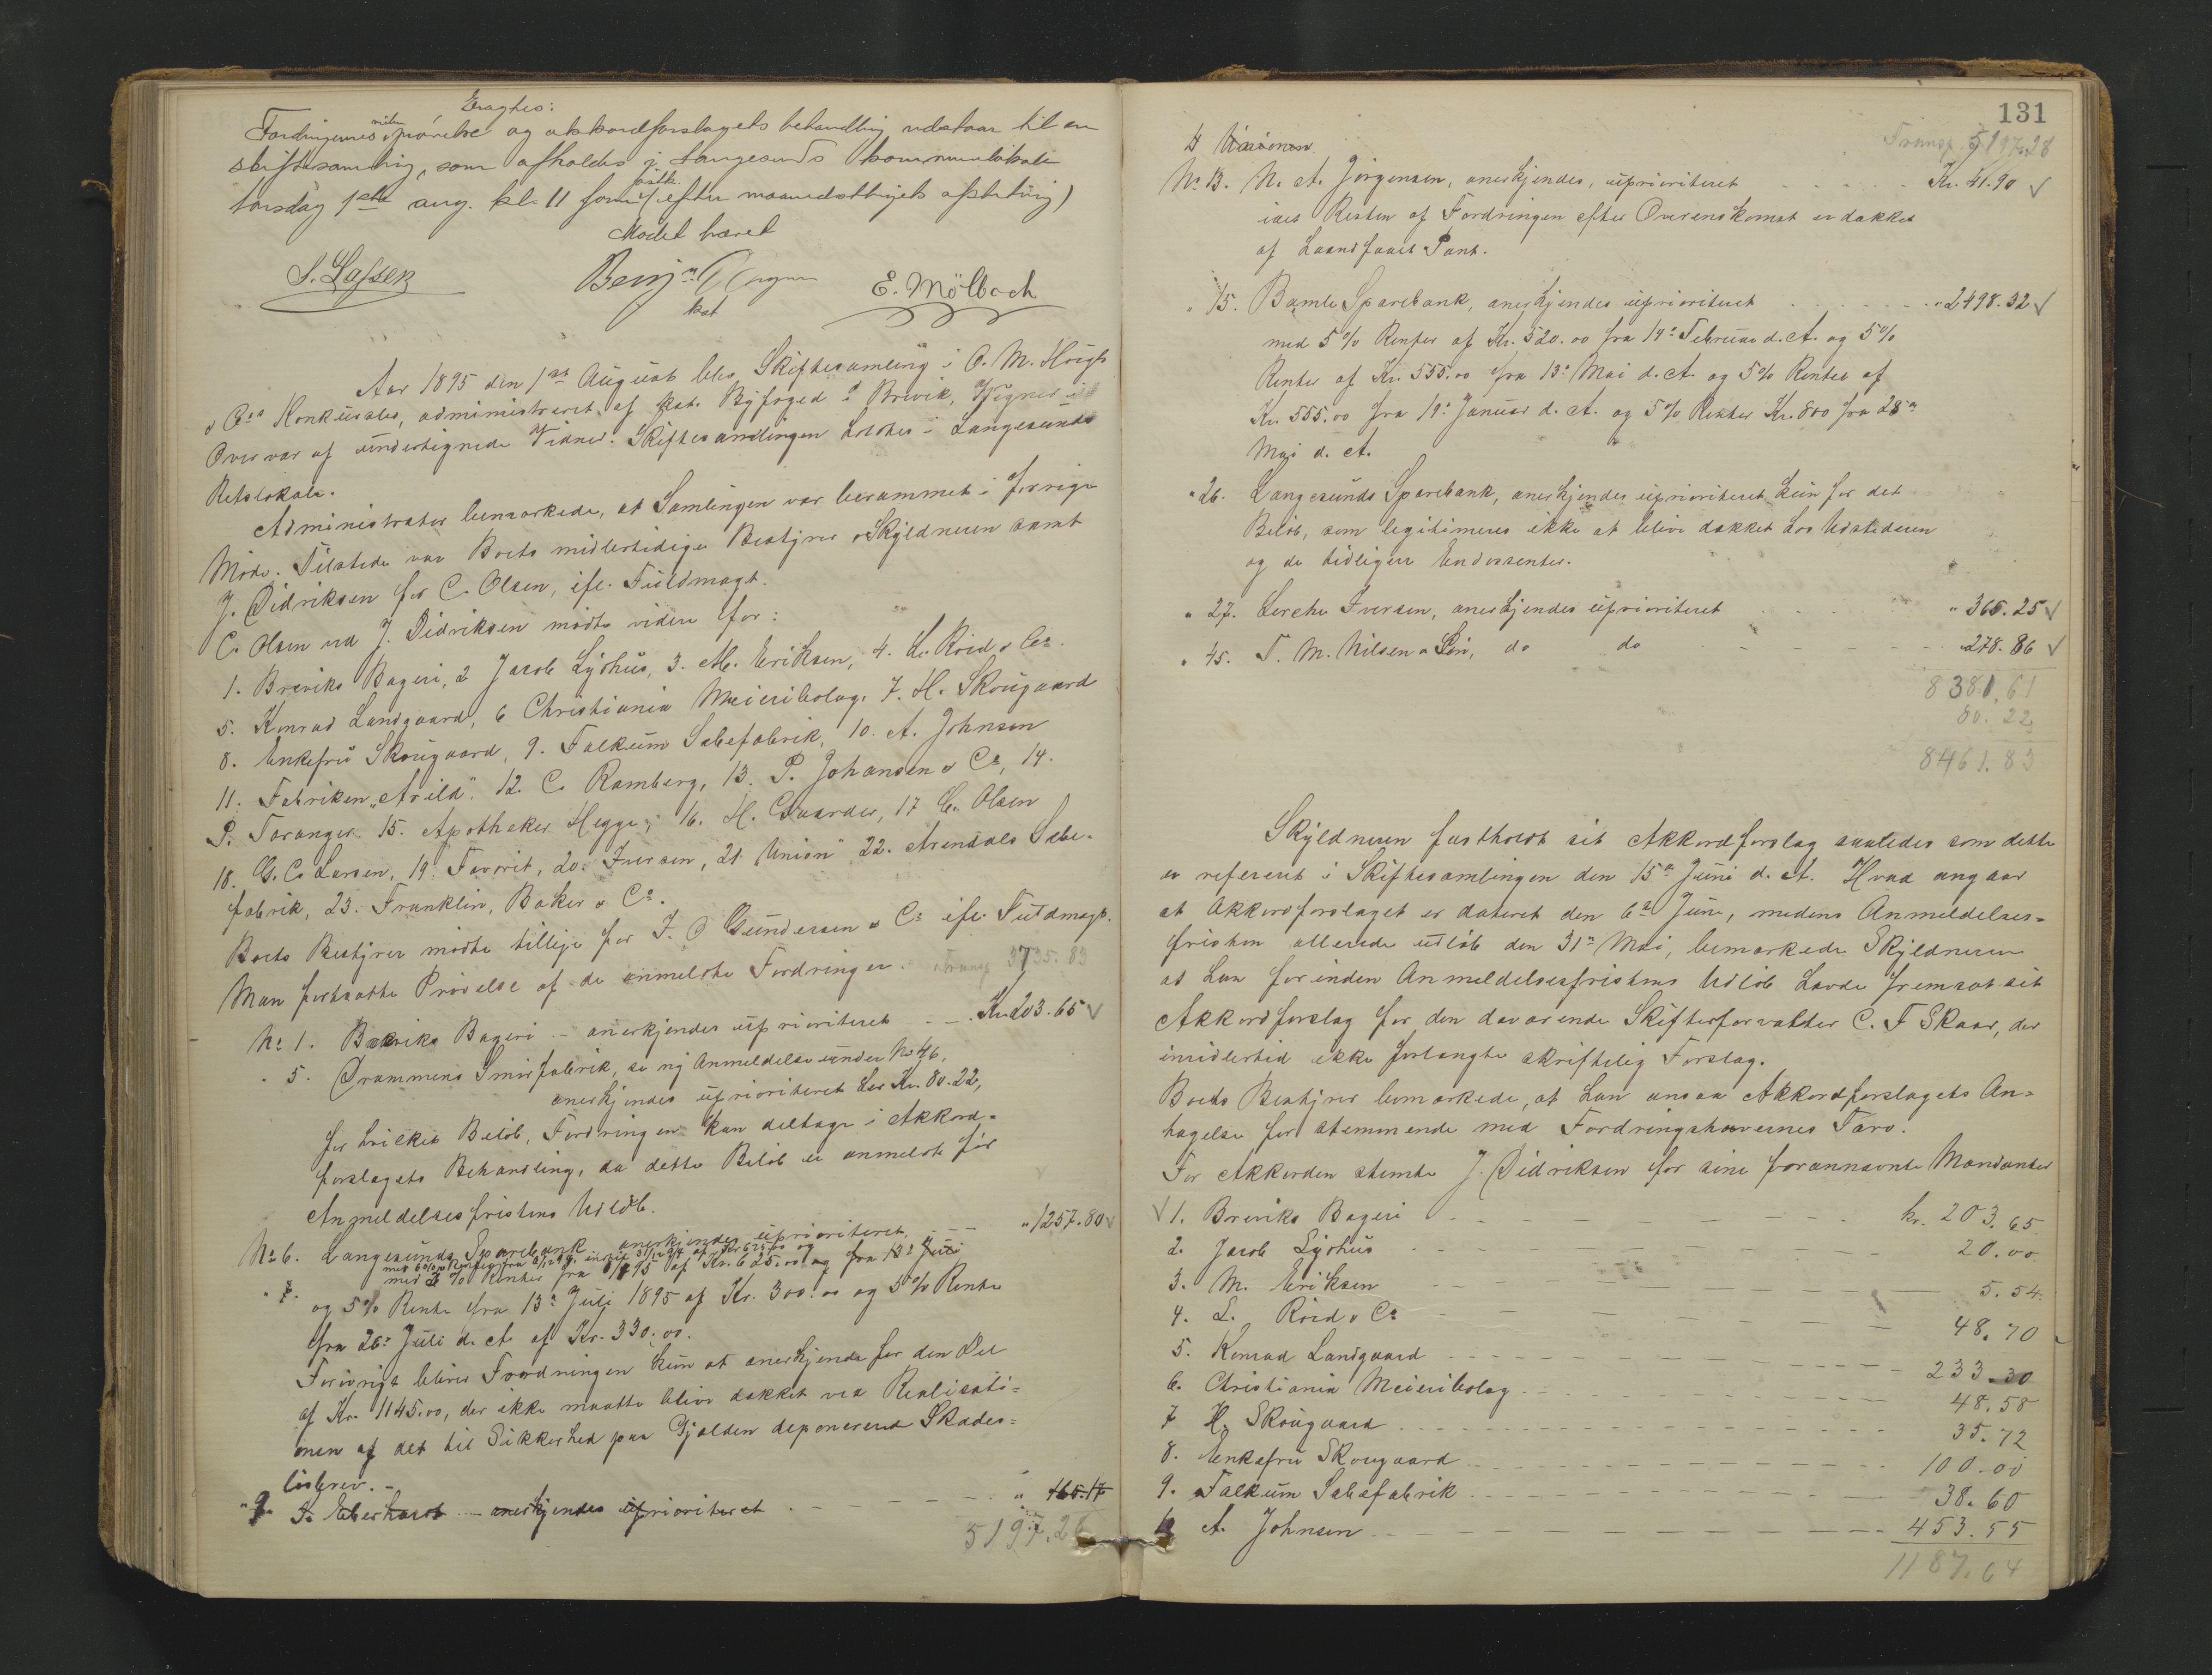 Eragtes:
Fordringernes videre prøvelse og akkordforslagets behandling udstaar til en
skiftesamling, som afholdes i Langesunds kommunelokale
torsdag 1ste aug. kl. 11 form. (efter maanedsthingets afslutning)
Mødet hævet
S. Lassen
E. Mölbach
kst
Aar 1895 den 1st August blev Skiftesamling i O. M. Höigh
& Co Konkursbo, administreret af kst. Byfoged i Brevik, Wegner
Overvar af undertegnede Vidner. Skiftesamlingen holdtes i Langesunds
Retslokale.
Administrator bemærkede, at Samlingen var berammet i forrige
Møde. Tilstede var Boets midlertidige Bestyrer & Skyldneren samt
J. Didriksen for C. Olsen, ifl. Fuldmagt.
C. Olsen ved J. Didriksen mødte videre for:
1. Breviks Bageri, 2 Jacob Lydhus, 3. M. Eriksen, 4. L. Röed & Co.
5. Konrad Landgaard, 6 Christiania Meieribolag. 7. H. Skougaard
8. Enkefru Skougaard, 9. Falkum Sæbefabrik, 10. A. Johnsen
11. Fabriken "Arild". 12. C. Ramberg, 13. P. Johansen & Co, 14.
P. Taranger. 15. Apotheker Hegge, 16. H. Gaarder, 17 C. Olsen
18. G. C. Larsen, 19. Favorit, 20. Iversen, 21 Union" 22. Arendals Sæbe-
fabrik, 23. Franklin, Baker & Co.
Boets Bestyrer mødte tillige for J. O Gundersen & Co ifl. Fuldmagt.
Man fortsatte Prøvelse af de anmeldte Fordringer. Transp 3735.83
No 1. Breviks Bageri - anerkjendes uprioriteret - - Kr. 203.65 ✓
" 5. Drammens Smørfabrik, se ny Anmeldelse under No 46,
anerkjendes uprioriteret her Kr. 80.22,
for hvilket Beløb, Fordringen kan deltage i Akkord-
forslagets Behandling, da dette Beløb er anmeldt før
Anmeldelsesfristens Udløb.
No 6. Langesunds Sparebank anerkjendes uprioriteret, - - - " 1257.80 ✓
og 5% Rente fra 13de Juli 1895 af Kr. 300.00 og 5% Rente
fra 26de Juli d. A. af Kr. 330.00.
Forøvrigt bliver Fordringen kun at anerkjende for den Del
af Kr. 1145.00, der ikke maatte blive dækket ved Realisati-
onen af det til Sikkerhed paa Gjælden deponerend Skades-
løsbrev. -
" 9. F. Eberhardt - anerkjendes uprioriteret - - - - " 165.17
5197.28
131
Transp. 5197.28
No 13. N. A. Jørgensen, anerkjendes, uprioriteret - - - - Kr. 41.90 ✓
idet Resten af Fordringen efter Overenskomst er dækket
af haandfaaet Pant.
" 15. Bamle Sparebank, anerkjendes uprioriteret - - - - " 2498.32 ✓
med 5% Renter af Kr. 520.00 fra 14de Februar d. A. og 5%
Renter af Kr. 555.00 fra 13de Mai d. A. og 5% Renter af
Kr. 555.00 fra 19de Januar d. A. og 5% Renter Kr. 800 fra 28de
Mai d. A.
" 26. Langesunds Sparebank, anerkjendes uprioriteret kun for det
Beløb, som legitimeres ikke at blive dækket hos Udstederen
og de tidligere Endossenter.
" 27. Lerche Iversen, anerkjendes uprioriteret - - - - " 365.25 ✓
" 45. T. M. Nilsen & Søn, do do - - - - " 278.86 ✓
8381.61
80.22
8461.83
Skyldneren fastholdt sit Akkordforslag saaledes som dette
er refereret i Skiftesamlingen den 15de Juni d. A. Hvad angaar
at Akkordforslaget er dateret den 6te Juni, medens Anmeldelses-
fristen allerede udløb den 31te Mai, bemærkede Skyldneren
at han forinden Anmeldelsesfristens Udløb havde fremsat sit
Akkordforslag for den daværende Skifteforvalter C. F Skaar, der
imidlertid ikke forlangte skriftelig Forslag.
Boets Bestyrer bemærkede, at han ansaa Akkordforslagets An-
tagelse for stemmende med Fordringshavernes Tarv.
For Akkorden stemte J. Didriksen for sine forannævnte Mandanter
✓ 1. Breviks Bageri - - - - kr. 203.65
2. Jacob Lydhus - - - - 20.00
3. M. Eriksen - - - - 5.54
4. L. Röed & Co - - - - 48.70
5. Konrad Landgaard - - - - 233.30
6. Christiania Meieribolag - - - - 48.58
7 H. Skougaard - - - - 35.72
8. Enkefru Skougaard - - - - 100.00
9. Falkum Sæbefabrik - - - - 38.60
10 A. Johnsen - - - - 453.55
1187.64